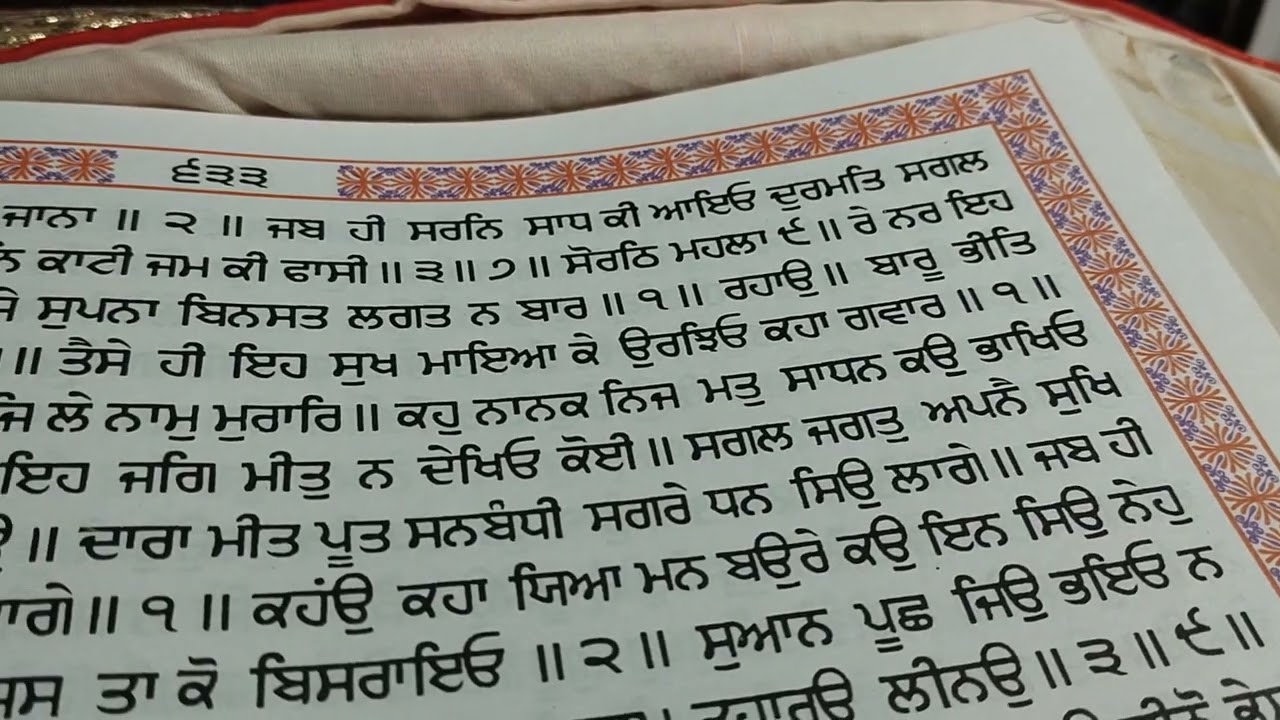 ੬੩੩
ਜਾਨਾ ॥ ੨ ॥ ਜਬ ਹੀ ਸਰਨਿ ਸਾਧ ਕੀ ਆਇਓ ਦੁਰਮਤਿ ਸਗਲ
ਕਾਟੀ ਜਮ ਕੀ ਫਾਸੀ ॥ ੩ ॥ ੭ ॥ ਸੋਰਠਿ ਮਹਲਾ ੯ ॥ ਰੇ ਨਰ ਇਹ
ਸੁਪਨਾ ਬਿਨਸਤ ਲਗਤ ਨ ਬਾਰ ॥ ੧ ॥ ਰਹਾਉ ॥ ਬਾਰੂ ਭੀਤਿ
॥ ਤੈਸੇ ਹੀ ਇਹ ਸੁਖ ਮਾਇਆ ਕੇ ਉਰਝਿਓ ਕਹਾ ਗਵਾਰ ॥ ੧ ॥
ਲੇ ਨਾਮੁ ਮੁਰਾਰਿ ॥ ਕਹੁ ਨਾਨਕ ਨਿਜ ਮਤੁ ਸਾਧਨ ਕਉ ਭਾਖਿਓ
ਇਹ ਜਗਿ ਮੀਤੁ ਨ ਦੇਖਿਓ ਕੋਈ ॥ ਸਗਲ ਜਗਤੁ ਅਪਨੈ ਸੁਖਿ
॥ ਦਾਰਾ ਮੀਤ ਪੂਤ ਸਨਬੰਧੀ ਸਗਰੇ ਧਨ ਸਿਉ ਲਾਗੇ ॥ ਜਬ ਹੀ
॥ ੧ ॥ ਕਹਂਉ ਕਹਾ ਯਿਆ ਮਨ ਬਉਰੇ ਕਉ ਇਨ ਸਿਉ ਨੇਹੁ
ਤਾ ਕੋ ਬਿਸਰਾਇਓ ॥ ੨ ॥ ਸੁਆਨ ਪੂਛ ਜਿਉ ਭਇਓ ਨ
ਲੀਨਉ ॥ ੩ ॥ ੯ ॥